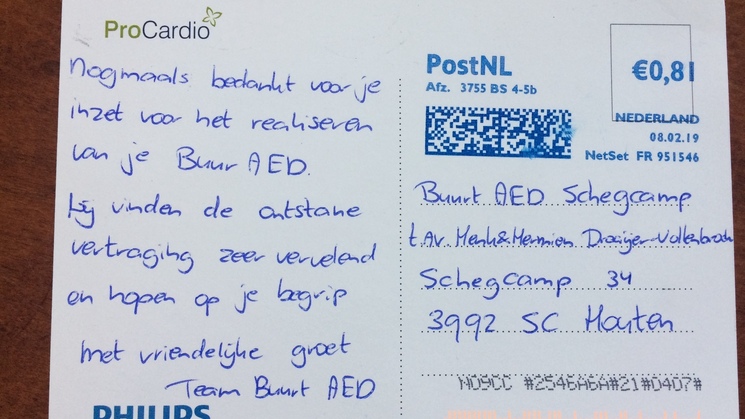 ProCardio
Nogmaals bedankt voor je
inzet voor het realiseren
van je Buurt AED.
Wij vinden de ontstane
vertraging zeer vervelend
en hopen op je begrip
Met vriendelijke groet
Team Buurt AED
PHILIPS
PostNL
Afz. 3755 BS 4-5b
€0,81
NEDERLAND
08.02.19
NetSet FR 951546
Buurt AED Schegcamp
t.Av. Henk & Hermien Draaijer-Vollenbroch
Schegcamp 34
3992 SC Houten
NO9CC #2546A6A#21#0407#